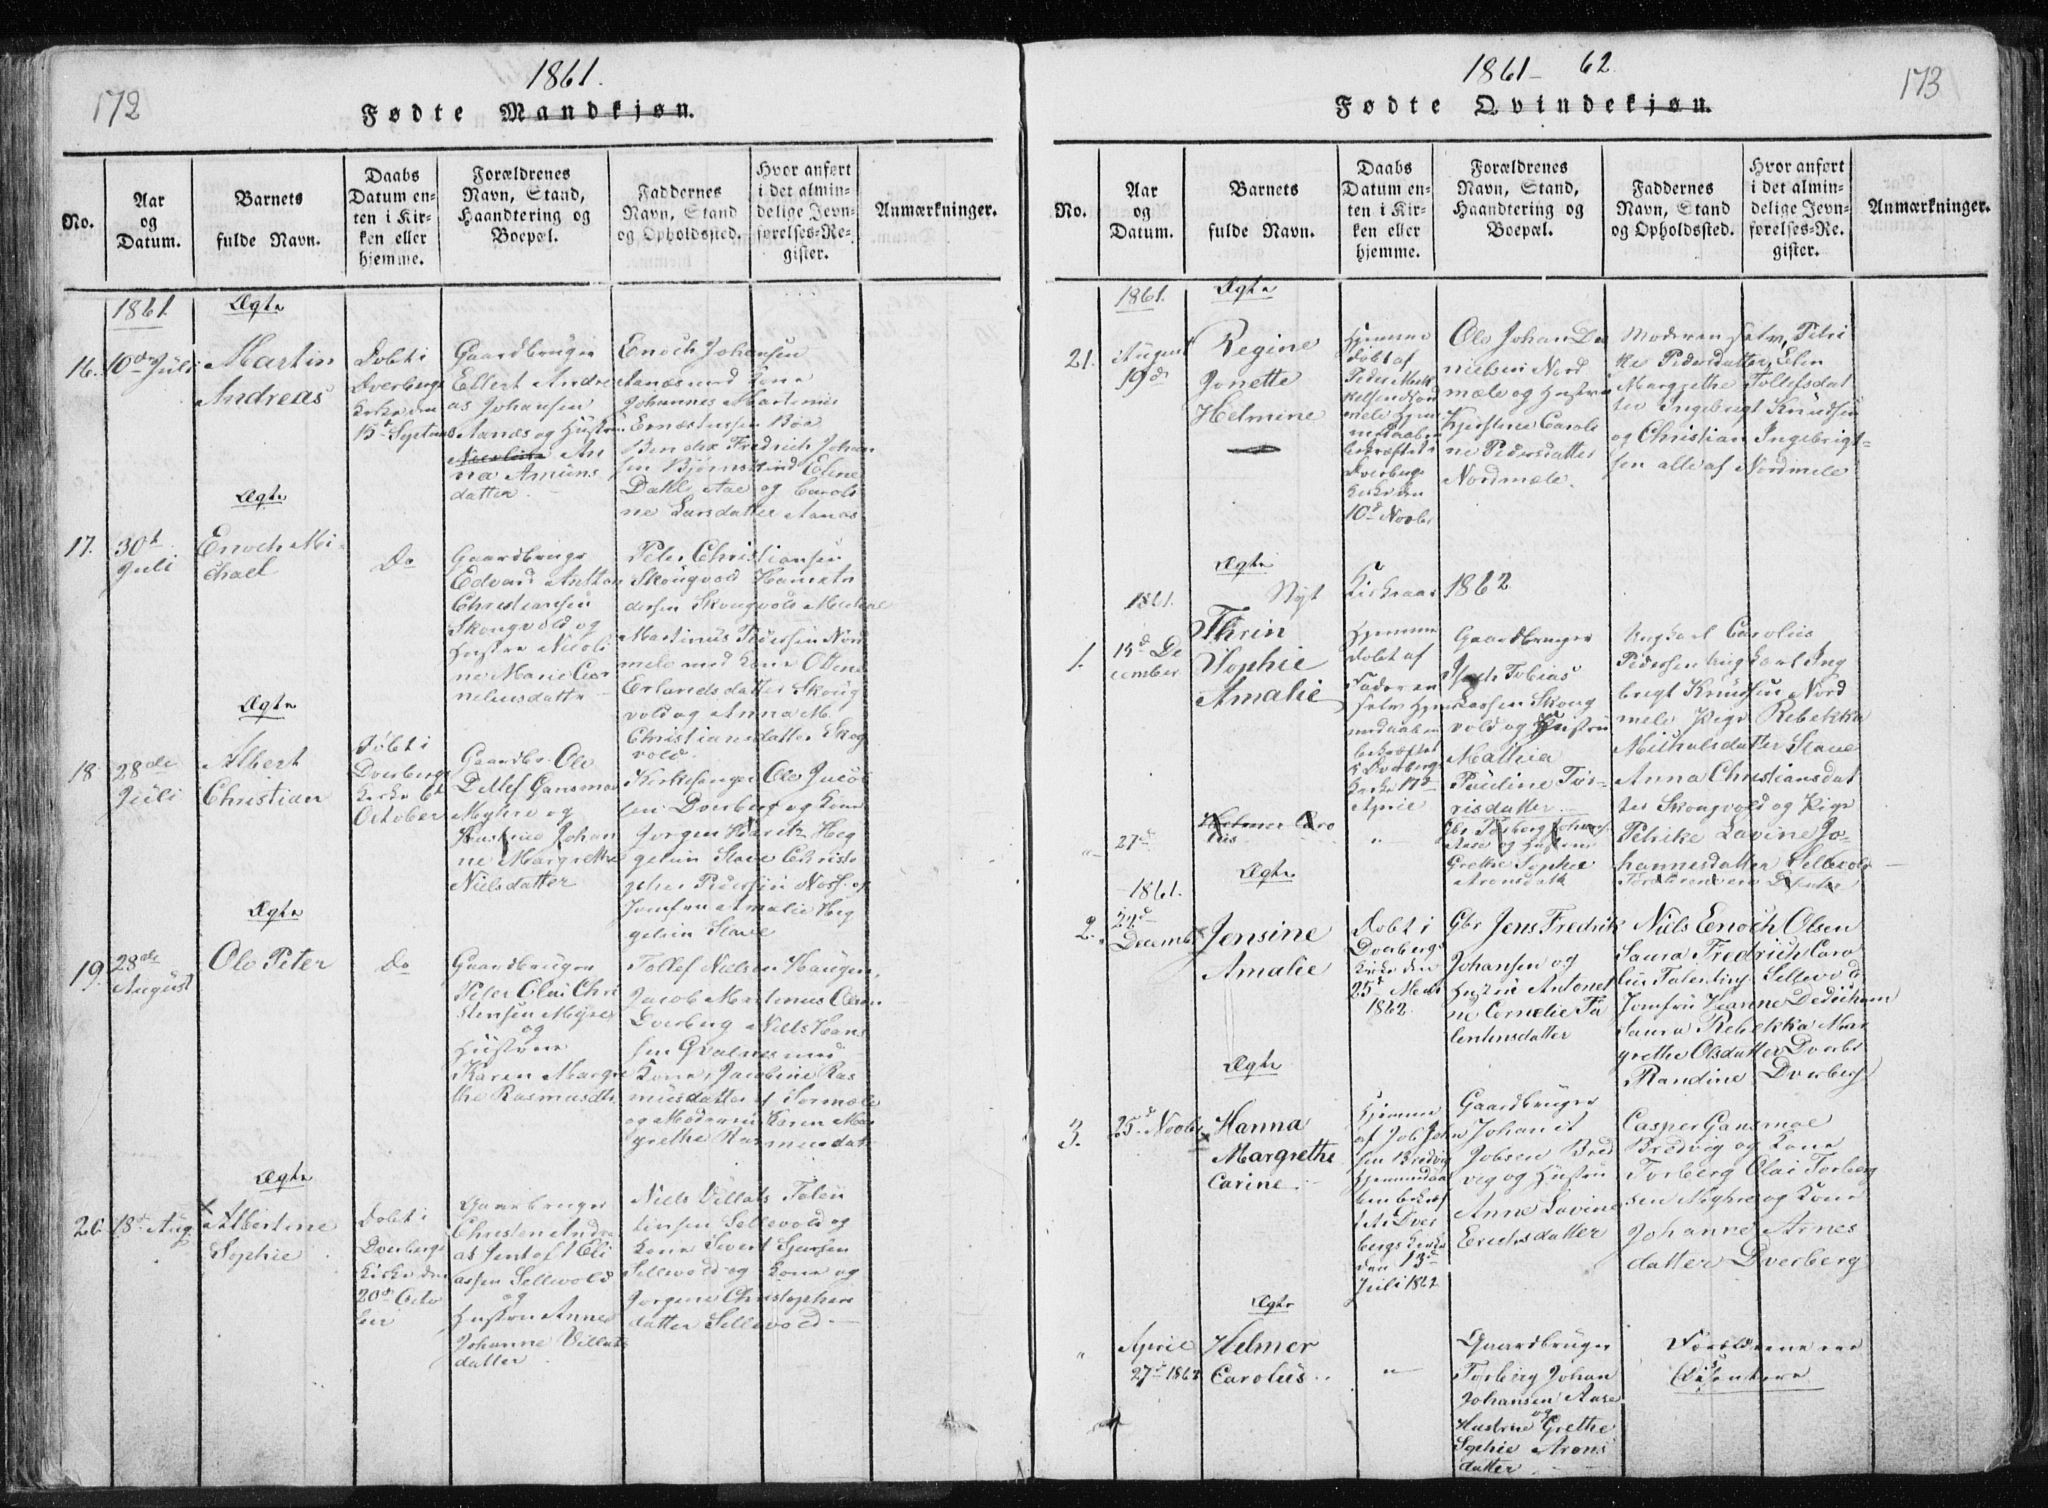 172
1861.
Fødte Mandkjøn.
No.
Aar
og
Datum.
Barnets
fulde Navn.
Daabs
Datum en-
ten i Kir-
ken eller
hjemme.
Forældrenes
Navn, Stand,
Haandtering og
Boepæl.
Faddernes
Navn, Stand
og Opholdssted.
Hvor anført
i det almin-
delige Jevn-
førelses-Re-
gister.
Anmærkninger.
1861.
Ægte
16.
10de Juli
Martin
Andreas
Dobt i
Dverbergs
Kirke den
15d Septem
Gaardbruger
Ellert Andre
as Johansen
Aanæs og Hustru
An
na Amuns
datter.
Enoch Johansen
Aanæs med Kone
Johannes Martenus
Ernæstussen Böe
Bendix Fredrich Johan
sen Björnskind Eline
Dahl Aae og Caroli
ne Larsdatter Aanæs
Ægte
17.
30t
Juli
Enoch Mi-
chael
Do
Gaardbruger
Edvard Anthon
Christiansen
Skougvold og
Hustru Nicoli
ne Marie Cor
neliusdatter
Peter Christiansen
Skougvold Hans An
dersen Skougvold Michael
Martinus Pedersen Nord
mele med Kone Oline
Erlandsdatter Skoug
vold og Anna M.
Christiansdatter Skog
vold.
Ægte
18
28de
Juli
Albert
Christian
Döbt i
Dverbergs
Kirke 6t
October
Gaardbr. Ole
Detlef Gansmoe
Myhre og
Hustrue Johan
ne Margrethe
Nielsdatter
Kirkesanger Ole Jacob
sen Dverberg og Kone
Jorgen Moritz Heg
gelun Slave Christo
pher Pedersen Nois. og
Jomfru Amalie Heg
gelun Slave
Ægte
19.
28de
August
Ole Peter
Do
Gaardbruger
Peter Olai Chri
stensen Myre
og
Hustrue
Karen Margre
the Rasmusdtr
Tollef Nielsen Haugen,
Jacob Martenus Olsen
Dverberg Niels Han
sen Qvalnes med
Kone, Jacobine Ras
musdatter af Sormæle
og Moderen Karen Mar
grethe Rasmusdatr
Ægte
20.
18d Aug
Albertine
Sophie
Dobt i
Dverbergs
Kirke den
20de Octo
ber
Gaardbruger
Christen Andre
as Jentoft Eli
assen Sellevold
og
Hustru Anne
Johanne Villats
datter
Niels Villats Falen
tinsen Sellevold og
Kone Sivert Sjursen
Sellevold og Kone og
Jorgine Christophers
datter Sellevold
173
1861- 62
Fødte Qvindekjøn.
No.
Aar
og
Datum.
Barnets
fulde Navn.
Daabs
Datum en-
ten i Kir-
ken eller
hjemme.
Forældrenes
Navn, Stand,
Haandtering og
Boepæl.
Faddernes
Navn, Stand
og Opholdssted.
Hvor anført
i det almin-
delige Jevn-
førelses-Re-
gister.
Anmærkninger.
1861.
Ægte
21.
August
19de
Regine
Jonette
Helmine
Hjemme
döbt af
Peder Mik
kelsen Nord
mele Hjem
medaaben
bekræftet i
Dverbergs
Kirke den
10d Novbr
Ole Johan Da
nielsen Nord
mæle og Hustru
Kjerstine Caroli
ne Pedersdatter
Nordmæle.
Moderen selv, Petri
ke Pedersdatter, Elen
Margrethe Tollefsdat
ter Ingebrigt Knudsen
og Christian Ingebrigt-
sen alle af Nordmele
Ægte
Nyt Kirkeaar 1862
1861.
1.
15d De
cember
Thrin
Sophie
Amalie
Hjemme
dobt af
Faderen
selv Hjem
medaaben
bekræftet
i Dverbergs
Kirke 17d
April
Gaardbruger
Isach Tobias
Larssen Skoug
vold og Hustru
Mathea
Pauline Tor-
risdatter
Ungkarl Carolius
Pedersen Ungkarl Ing
brigt Knudsen Nord
mele Pige Rebekka
Michalsdatter Slave
Anna Christiansdat
ter Skougvold og Pige
Petrike Lavine Jo-
hannesdatter Sellevold
"
27d
Helmer Caro
lus
"
Gbr Torberg Johans.
Aase og Hustru
Grethe Sophie
Aronsdatt
Forældrene ere Disente
Ægte
1861.
2.
22d
Decemb
Jensine
Amalie
Dobt i
Dverbergs
Kirke den
25d Marts
1862
Gbr Jens Fredrik
Johansen og
Hustru Antonet
ne Cornelie Fa
lentinsdatter
Niels Enoch Olsen
Saura Fredrich Caro
lus Falentins. Sellevold
Jomfru Hanne Dedichen
Saura Rebekka Mar
grethe Olsdatter Dverbr
Randine Dverberg
Ægte
3.
25d Novbr
Hanna
Margrethe
Carine
Hjemme
af Job John
sen Bredvig
Hjemmedaa
ben bekræf
t i Dver
bergs Kirke
den 13de
Juli 1862
Gaardbruger
Johan
Jobsen Bred
vig og Hustru
Anne Lavine
Erichsdatter
Casper Gansmoe
Bredvig og Kone
Torberg Olai Torberg
sen Myhre og Kone
Johanne Arnes
datter Dverberg
Ægte
"
April
27d 1862
Helmer
Carolus
"
Gaardbruger
Torberg Johan
Johansen Aase
og
Hustrue Grethe
Sophie Arons
datter
Forældrene ere
Disentere